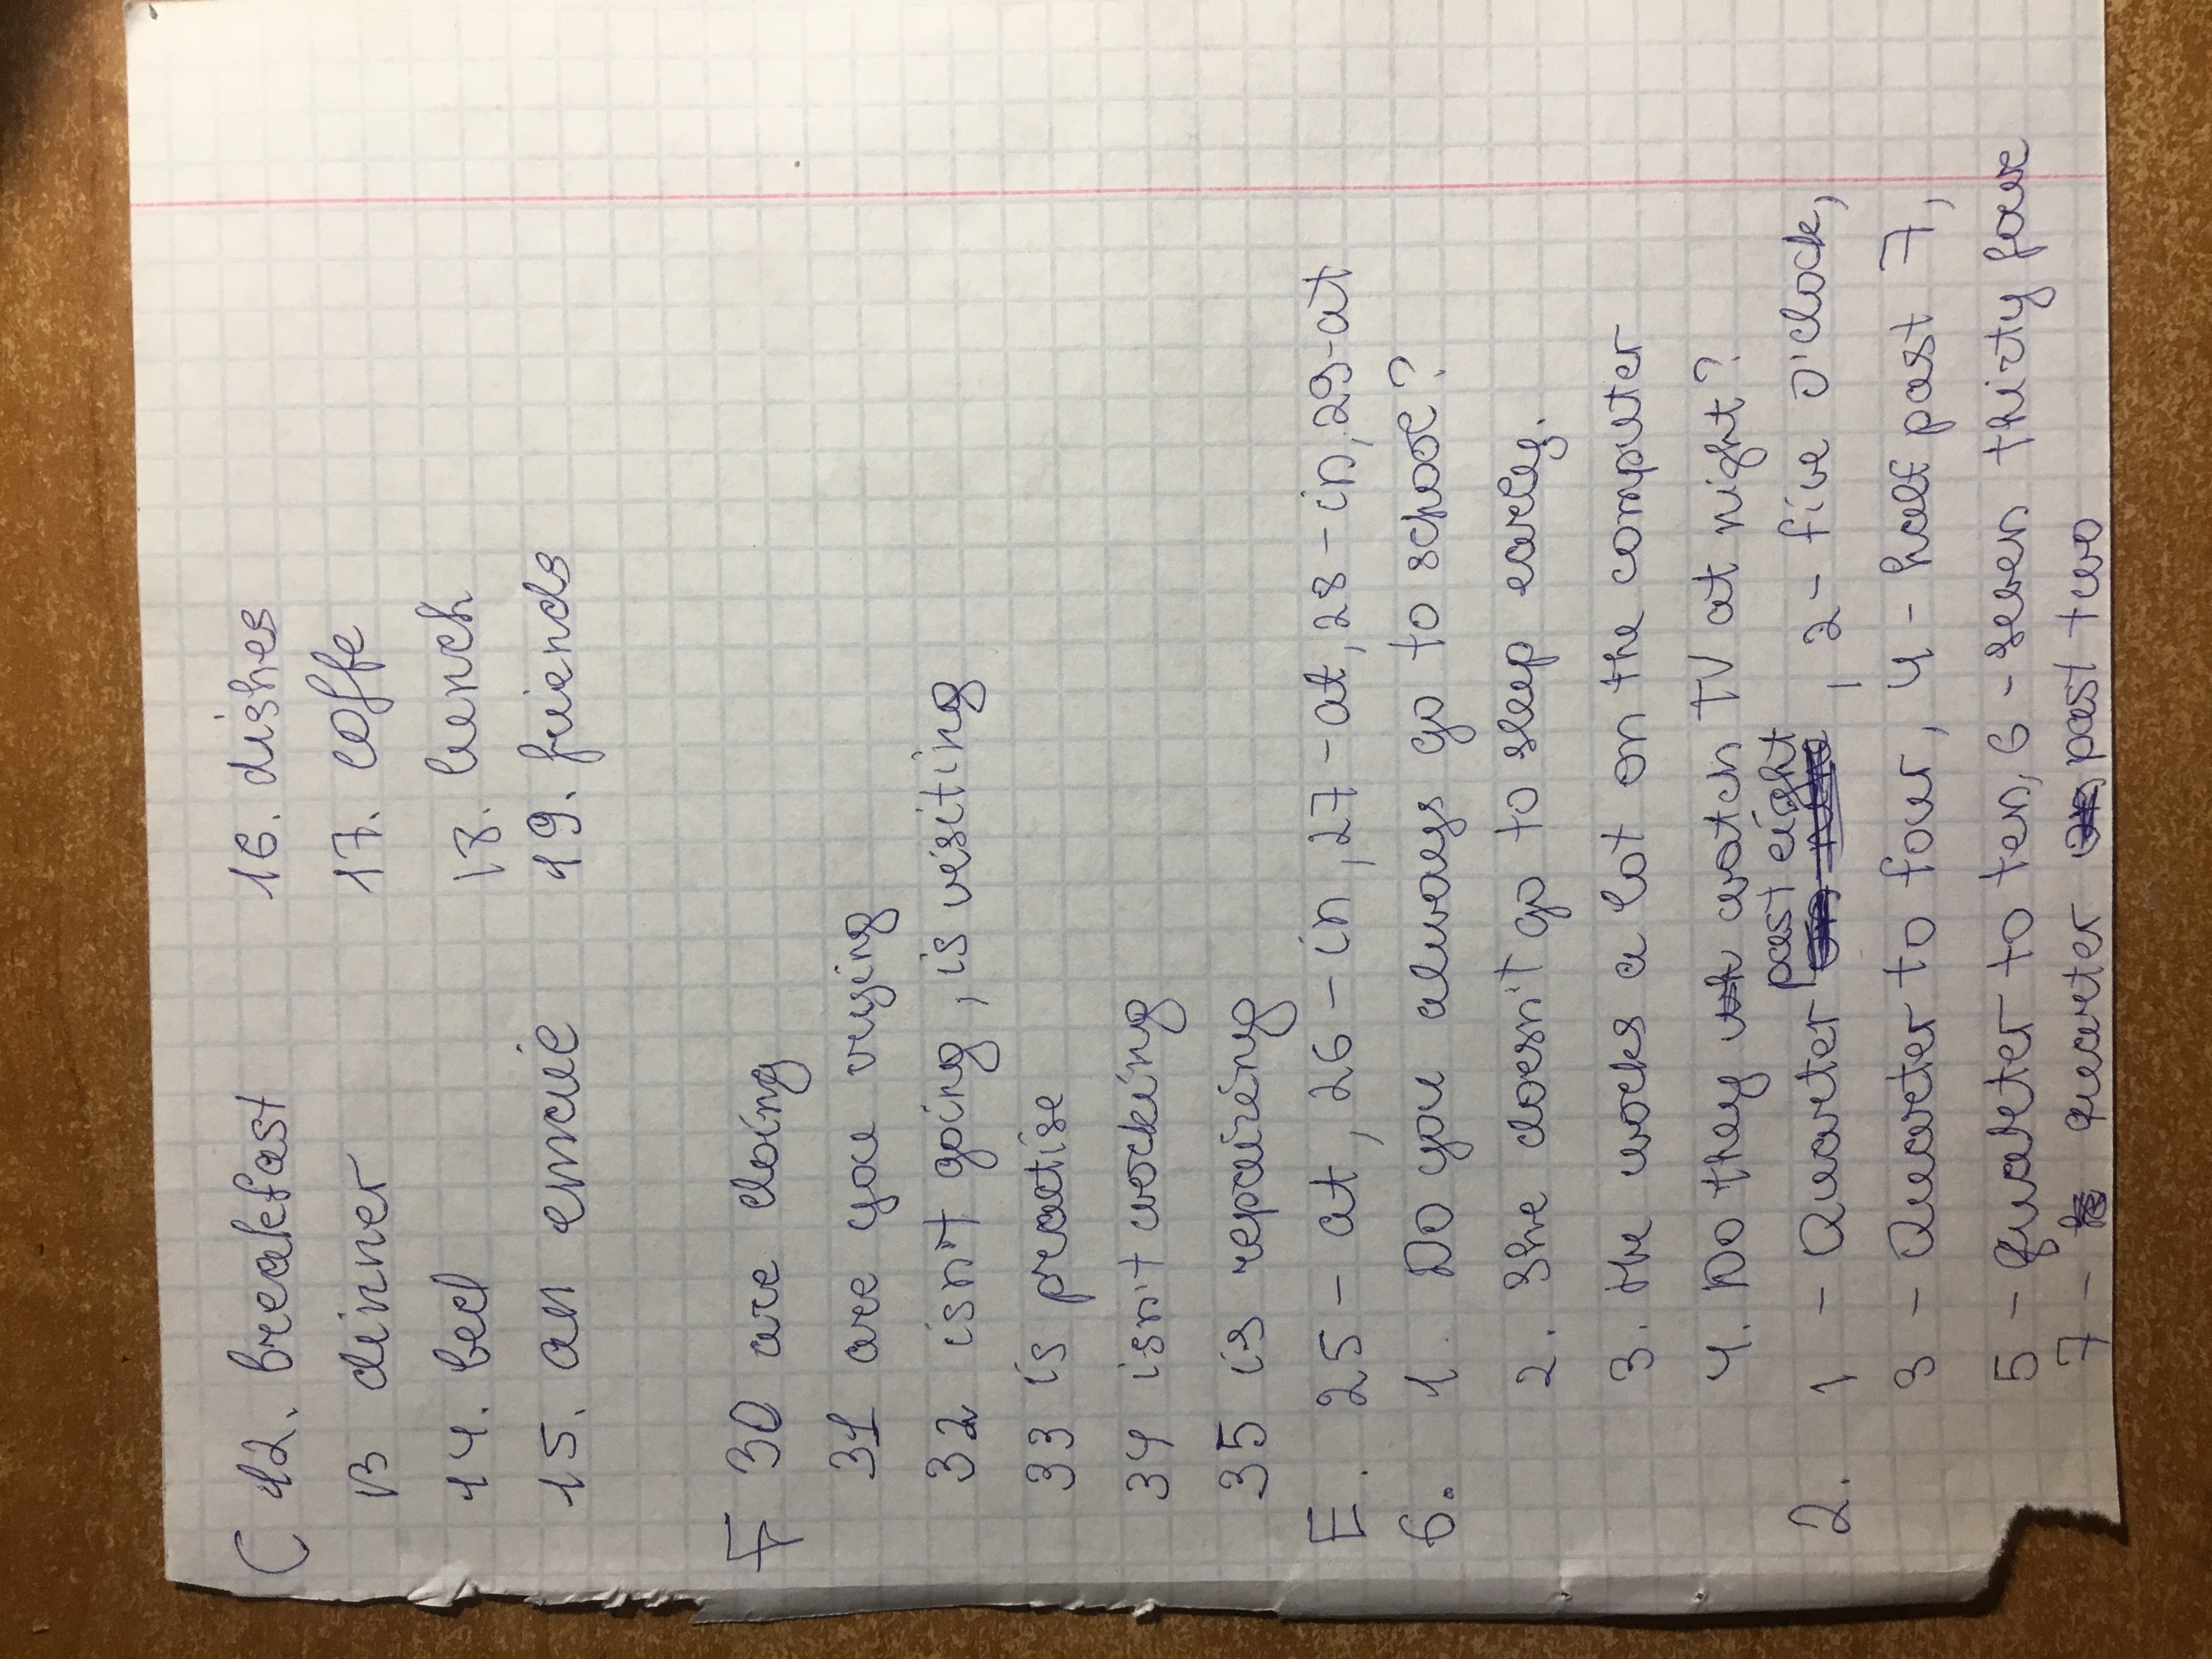 C 12. breakfast 16. dishes
13 dinner 17. coffe
14. bed 18. lunch
15. an emaie 19. friends
F 30 are doing
31 are you using
32 isn't going, is visiting
33 is practise
34 isn't working
35 is repairing
E. 25 - at, 26 - in, 27 - at, 28 - in, 29 - at
6. 1. Do you always go to school?
2. She doesn't go to sleep early.
3. He works a lot on the computer
4. Do they watch TV at night?
2. 1 - Quarter past eight, 2 - five o'clock,
3 - Quarter to four, 4 - half past 7,
5 - quarter to ten, 6 - seven thirty four
7 - quarter past two